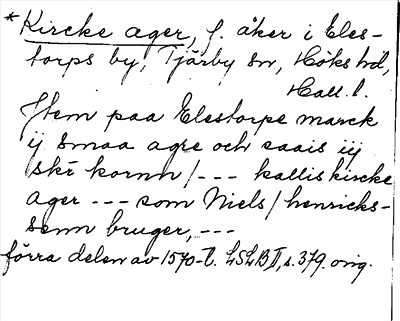 * Kircke ager, f. åker i Eles-
torps by, Tjärby sn, Höks hd,
Hall. l.
Item paa Elestorpe marck
ij smaa agre och saais iij
skr kornn/ --- kallis kircke
ager --- som Niels/henricks-
senn bruger, ---
förra delen av 1570-t. LSLB II, s. 379. orig.